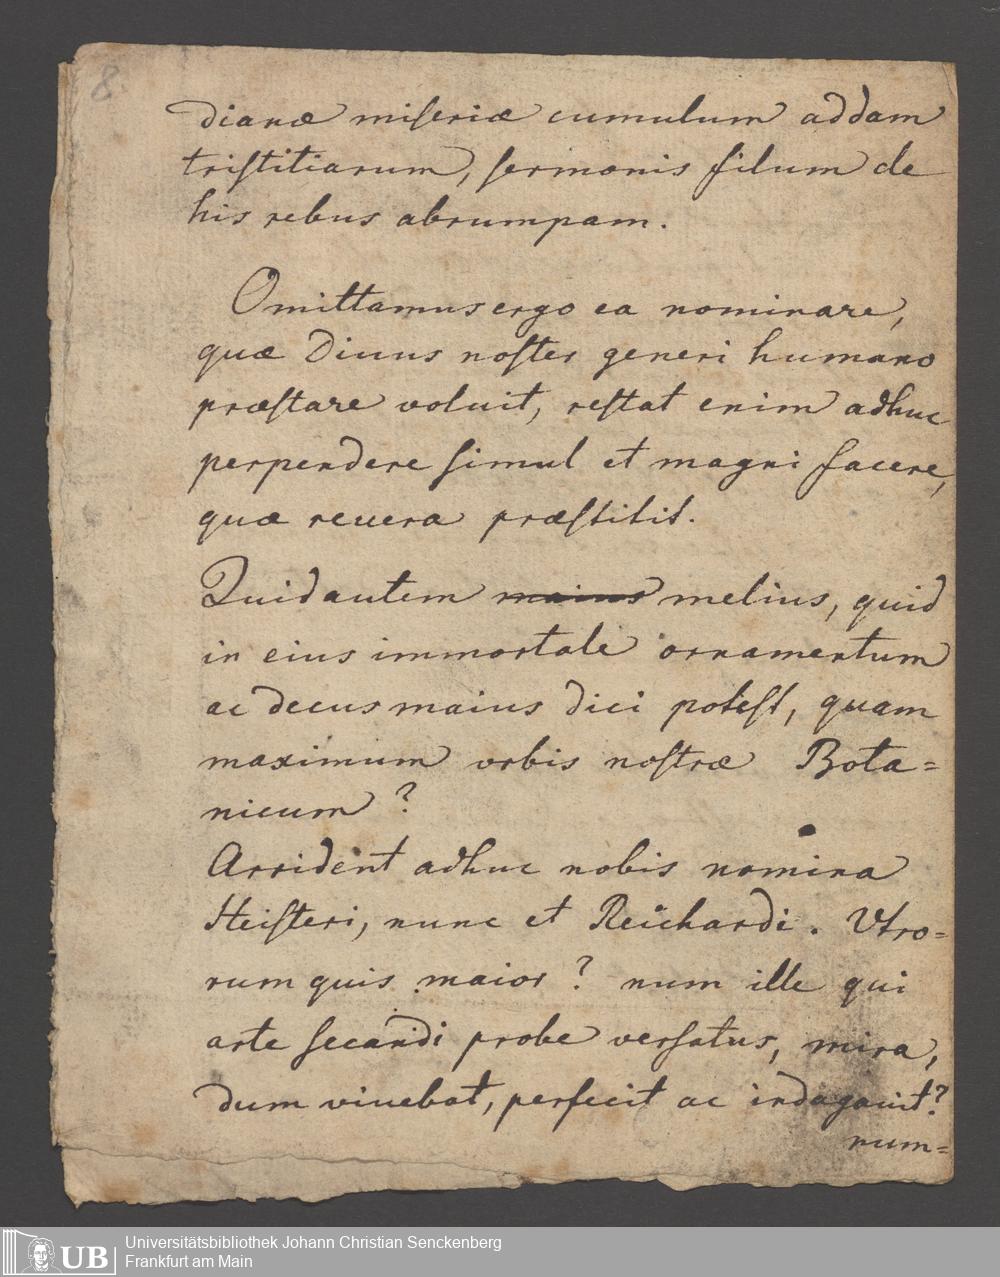 8.
dianæ miſeriæ cumulum addam
triſtitiarum, ſermonis filum de
his rebus abrumpam.
Omittamus ergo ea nominare,
quæ Diuus noſter generi humano
præſtare voluit, reſtat enim adhuc
perpendere ſimul et magni facere,
quæ reuera præſtitit.
Quid autem maius melius, quid
in eius immortale ornamentum
ac decus maius dici poteſt, quam
maximum orbis noſtræ Bota=
nicum?
Arrident adhuc nobis nomina
Heiſteri, nunc et Reichardi. Vtro=
rum quis maior? num ille qui
arte ſecandi probe verſatus, mira,
dum viuebat, perfecit ac indagauit?
num=
UB
Universitätsbibliothek Johann Christian Senckenberg
Frankfurt am Main